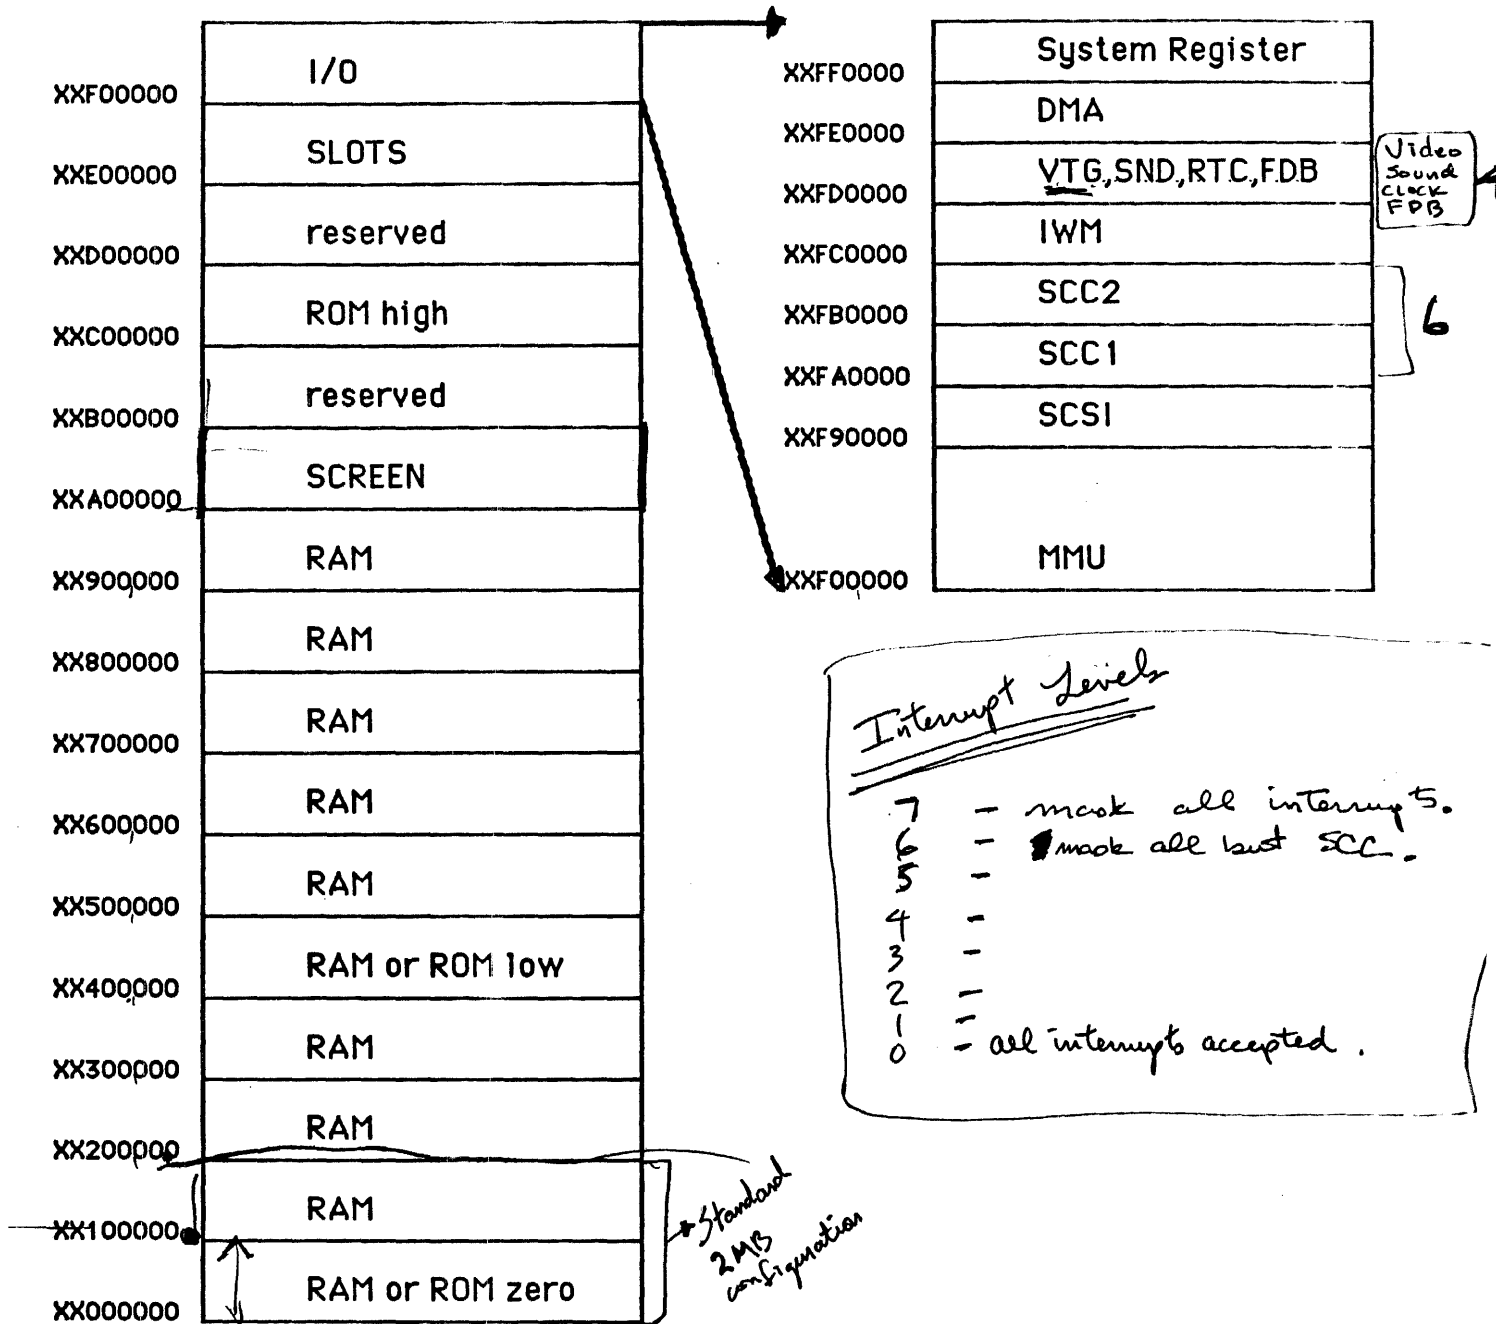 I/O
XXF00000
SLOTS
XXE00000
reserved
XXD00000
ROM high
XXC00000
reserved
XXB00000
SCREEN
XXA00000
RAM
XX900000
RAM
XX800000
RAM
XX700000
RAM
XX600000
RAM
XX500000
RAM or ROM low
XX400000
RAM
XX300000
RAM
XX200000
RAM
XX100000
RAM or ROM zero
XX000000
Standard
2MB
configuration
System Register
XXFF0000
DMA
XXFE0000
VTG,SND,RTC,FDB
XXFD0000
Video
Sound
CLOCK
FDB
IWM
XXFC0000
SCC2
XXFB0000
SCC1
XXFA0000
6
SCSI
XXF90000
MMU
XXF00000
Interrupt Levels
7 - mask all interrupts.
6 - mask all but SCC.
5 -
4 -
3 -
2 -
1 -
0 - all interrupts accepted.